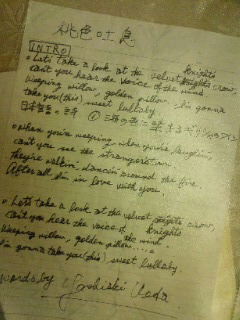 桃色吐息
INTRO
• Let's take a look at the velvet knights crow,
Can't you hear the voice of the wind
Weeping willow, golden pillow, I'm gonna
take you (this) sweet lullaby
日本語の詩
• When you're weeping, when you're laughin',
Can't you see the strangers
They're walkin', dancin' around the fire
After all I'm in love with you.
• Let's take a look at the velvet knights crow,
Can't you hear the voice of the wind
Weeping willow, golden pillow....
I'm gonna take you (this) sweet lullaby.
words by Yoshiaki